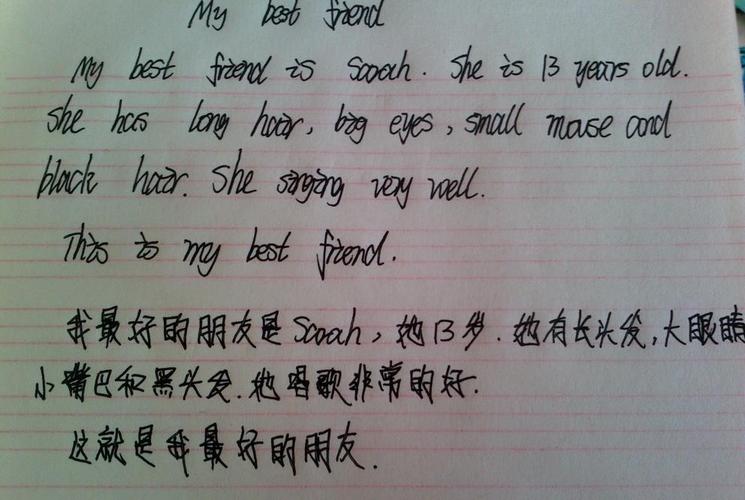 My best friend
My best friend is Scoah. She is 13 years old.
She has long hair, big eyes, small mouse and
black hair. She singing very well.
This is my best friend.
我最好的朋友是Scoah,她13岁.她有长头发,大眼睛
小嘴巴和黑头发.她唱歌非常的好.
这就是我最好的朋友.